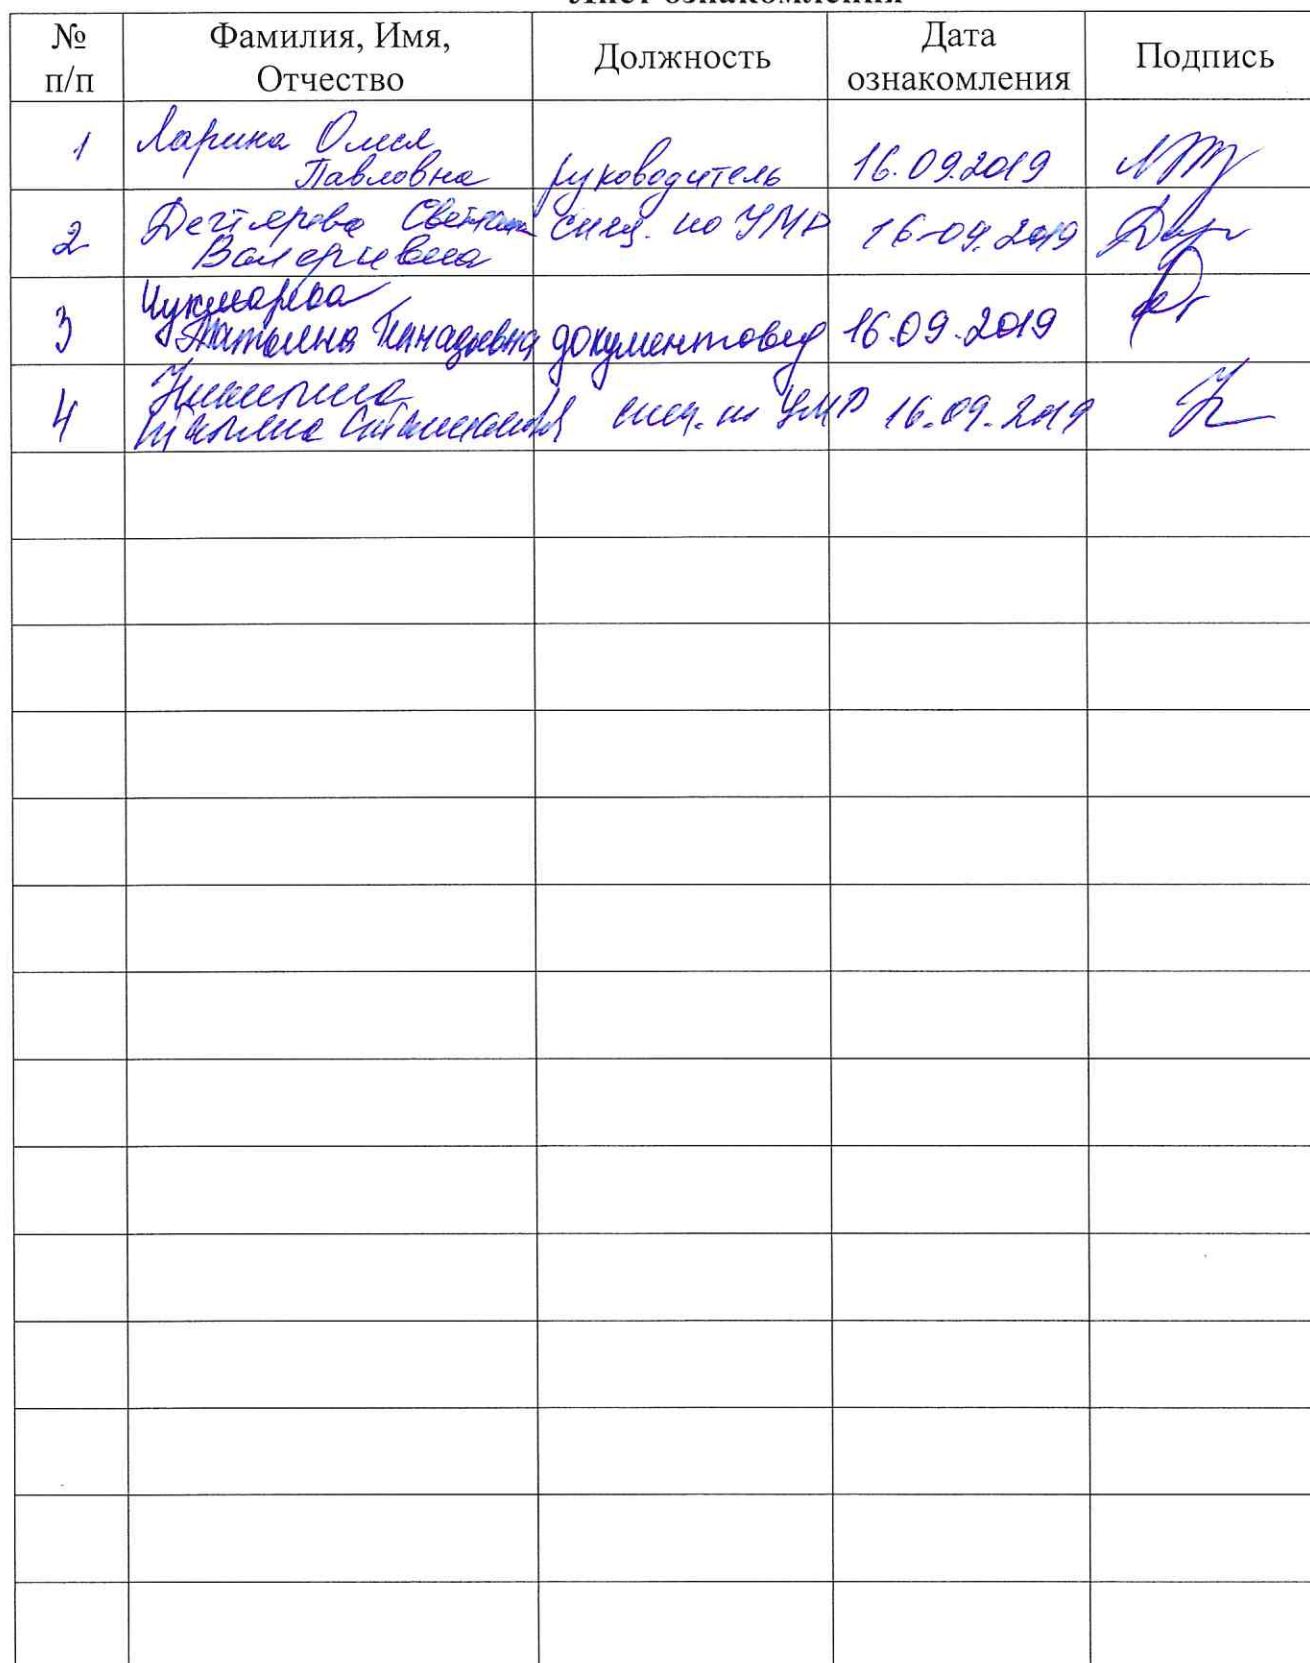 Лист ознакомления
№ п/п
Фамилия, Имя, Отчество
Должность
Дата ознакомления
Подпись
1
Ларина Олеся
Павловна
руководитель
16.09.2019
2
Дегтярева Светлана
Валериевна
спец. по УМР
16.09.2019
3
Татьяна Генадьевна
документовед
16.09.2019
4
Никитина
Татьяна
спец. по УМР
16.09.2019